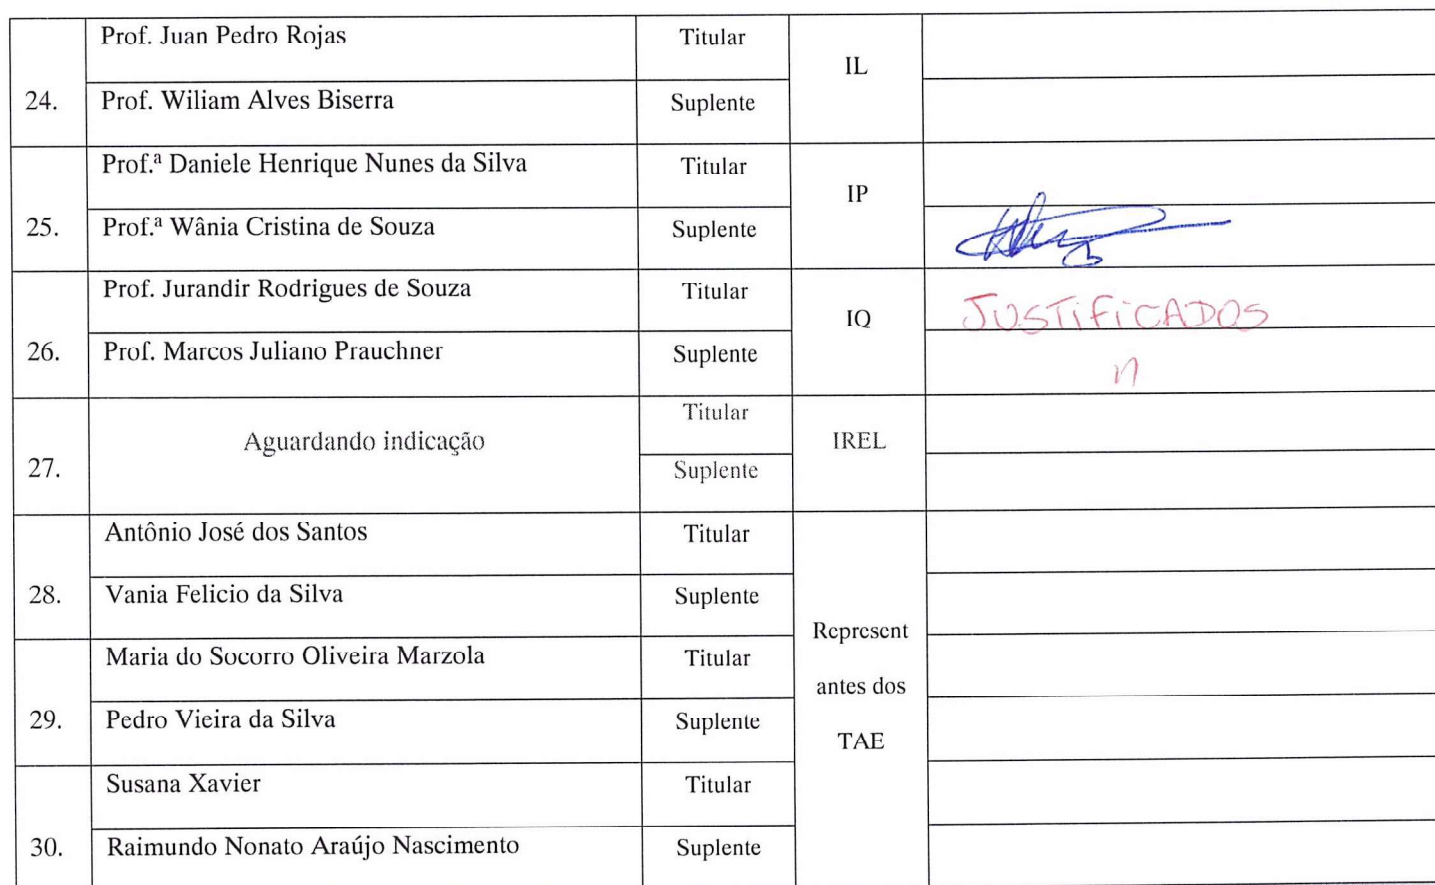 Prof. Juan Pedro Rojas Titular
IL
24. Prof. Wiliam Alves Biserra Suplente
Prof.ª Daniele Henrique Nunes da Silva Titular
IP
25. Prof.ª Wânia Cristina de Souza Suplente
Prof. Jurandir Rodrigues de Souza Titular
IQ JUSTIFICADOS
26. Prof. Marcos Juliano Prauchner Suplente
Titular
Aguardando indicação IREL
27. Suplente
Antônio José dos Santos Titular
28. Vania Felicio da Silva Suplente
Represent
Maria do Socorro Oliveira Marzola Titular
antes dos
29. Pedro Vieira da Silva Suplente
TAE
Susana Xavier Titular
30. Raimundo Nonato Araújo Nascimento Suplente